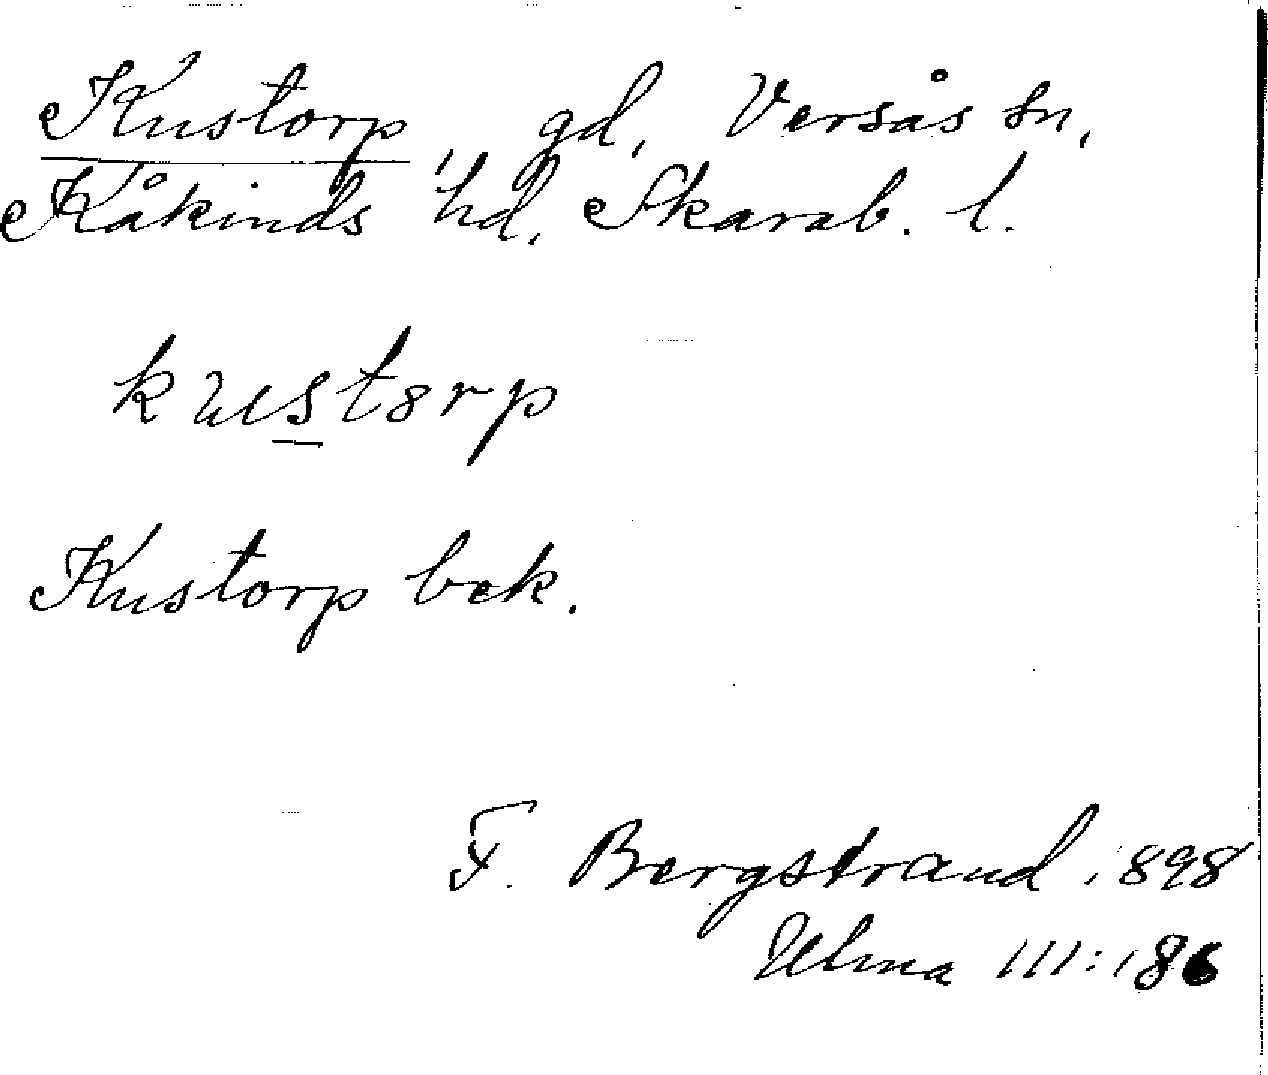 Kustorp, gd, Versås sn,
Kåkinds hd, Skarab. l.
kustorp
Kustorp bek.
F. Bergstrand 1898
Ulma 111:186